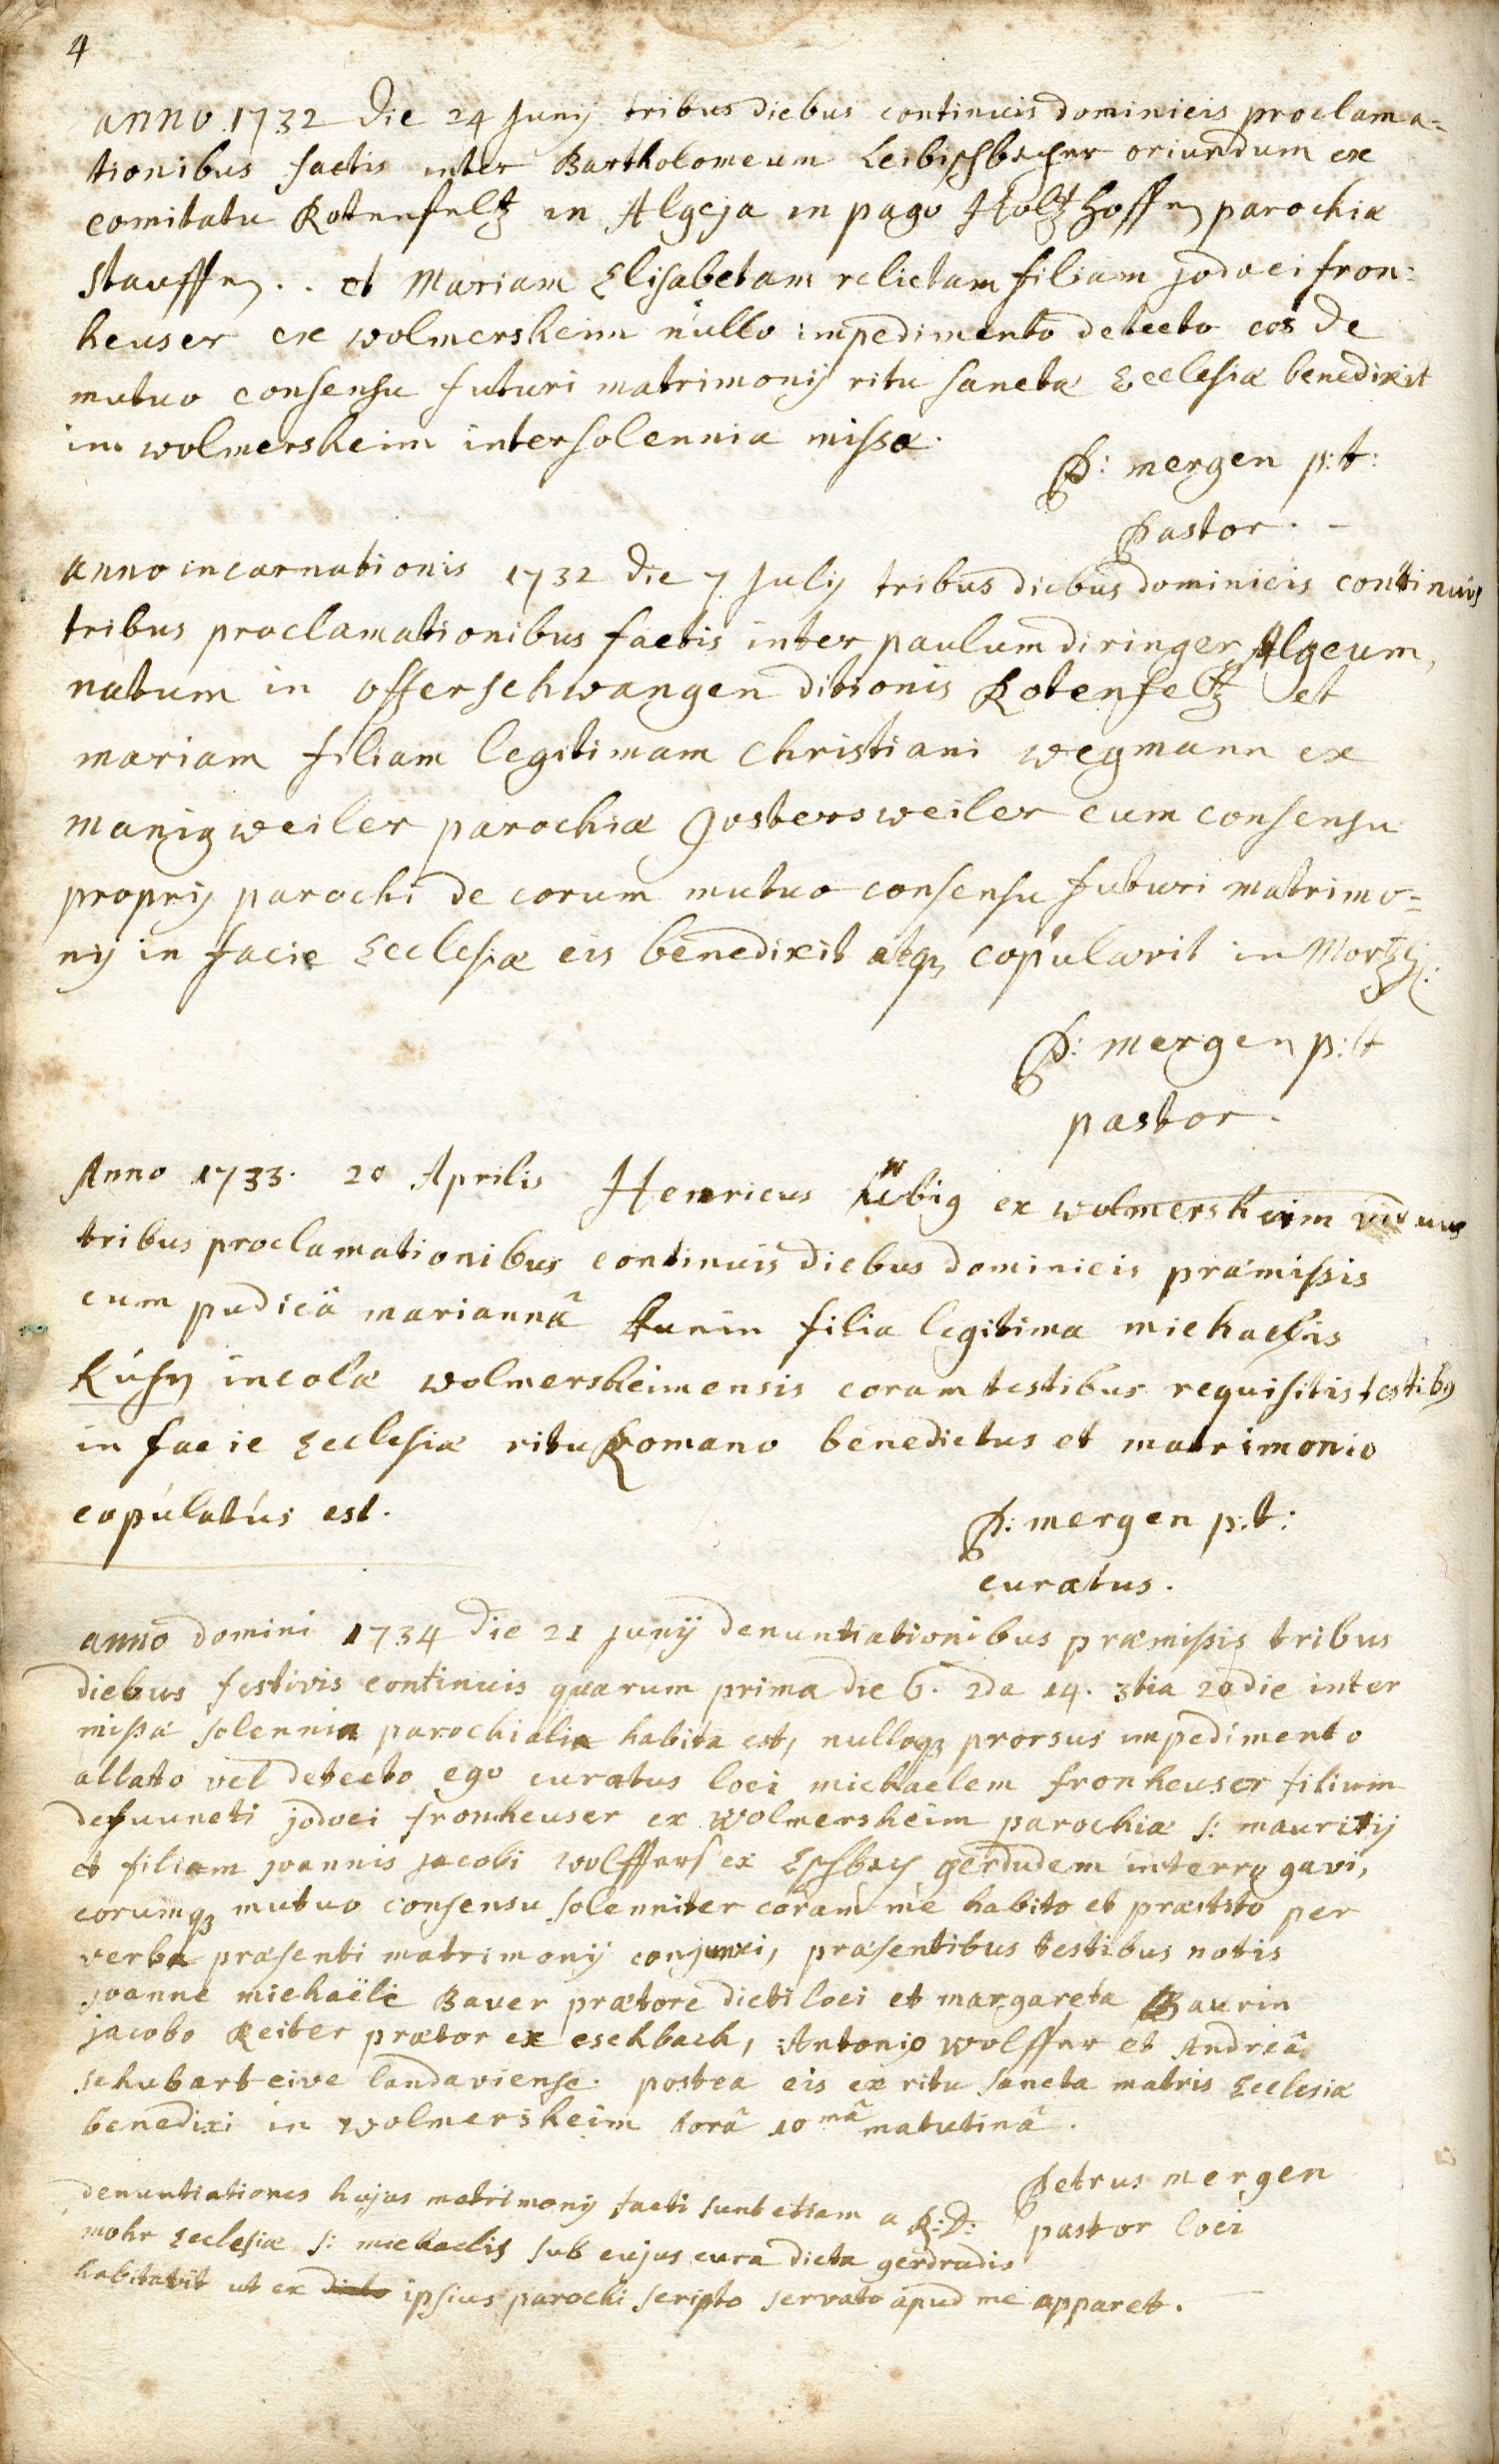 4
anno 1732 die 24 Junÿ tribus diebus continuis dominicis proclama=
tionibus factis inter Bartholomeum Leibischbacher oriundum ex
comitatu Rotenfeltz in Algeja in pago Holtzhoffen parochiæ
Stauffen .. et Mariam Elisabetam relictam filiam jodoci fron=
heuser ex wolmersheim nullo impedimento detecto eos de
mutuo consensu futuri matrimonÿ ritu sanctæ Ecclesiæ benedixit
in wolmersheim inter solennia missæ.
P: mergen p:t:
Pastor. -
anno incarnationis 1732 die 7 Julÿ tribus diebus dominicis continuis
tribus proclamationibus factis inter paulum diringer Algeum,
natum in offerschwangen ditionis Rotenfeltz et
mariam filiam legitimam Christiani wegmann ex
manigweiler parochiæ Gostersweiler cum consensu
proprÿ parochi de eorum mutuo consensu futuri matrimo=
nÿ in facie Ecclesiæ eis benedixit atq3 copulavit in Mortzh:
P: mergen p:t
pastor.
Anno 1733. 20 Aprilis Henricus big ex wolmersheim viduus
tribus proclamationibus continuis diebus dominicis præmissis
cum pudicâ mariannâ kunin filia legitima michaelis
Kühn incolæ wolmersheimensis coram testibus requisitis testib9
in facie Ecclesiæ ritu Romano benedictus et matrimonio
copulatus est.
P: mergen p:t:
curatus.
anno domini 1734 die 21 junÿ denuntiationibus præmissis tribus
diebus festivis continuis quarum prima die 6. 2da 14. 3tia 20 die inter
missæ solennia parochialia habita est, nulloq3 prorsus impedimento
allato vel detecto ego curatus loci michaelem fronheuser filium
defuuncti jodoci fronheuser ex wolmersheim parochiæ s: mauritÿ
et filiam joannis jacobi wolffers ex Eschbach gerdudem interrogavi,
eorumq3 mutuo consensu solenniter coram me habito et præstito per
verba præsenti matrimonÿ conjunxi, præsentibus testibus notis
joanne michaële Baver prætore dicti loci et margareta Baurin
jacobo Reiter prætor ex eschbach, Antonio wolffer et Andreâ
schubart cive landaviense. postea eis ex ritu sanctæ matris Ecclesiæ
benedixi in wolmersheim horâ 10mâ matutinâ.
Petrus mergen
pastor loci
denuntiationes hujus matrimonÿ facti sunt etiam a R:D:
mohr Ecclesiæ s: michaelis sub cujus cura dicta gerdrudis
habitavit ut ex dicto ipsius parochi scripto servato apud me apparet.